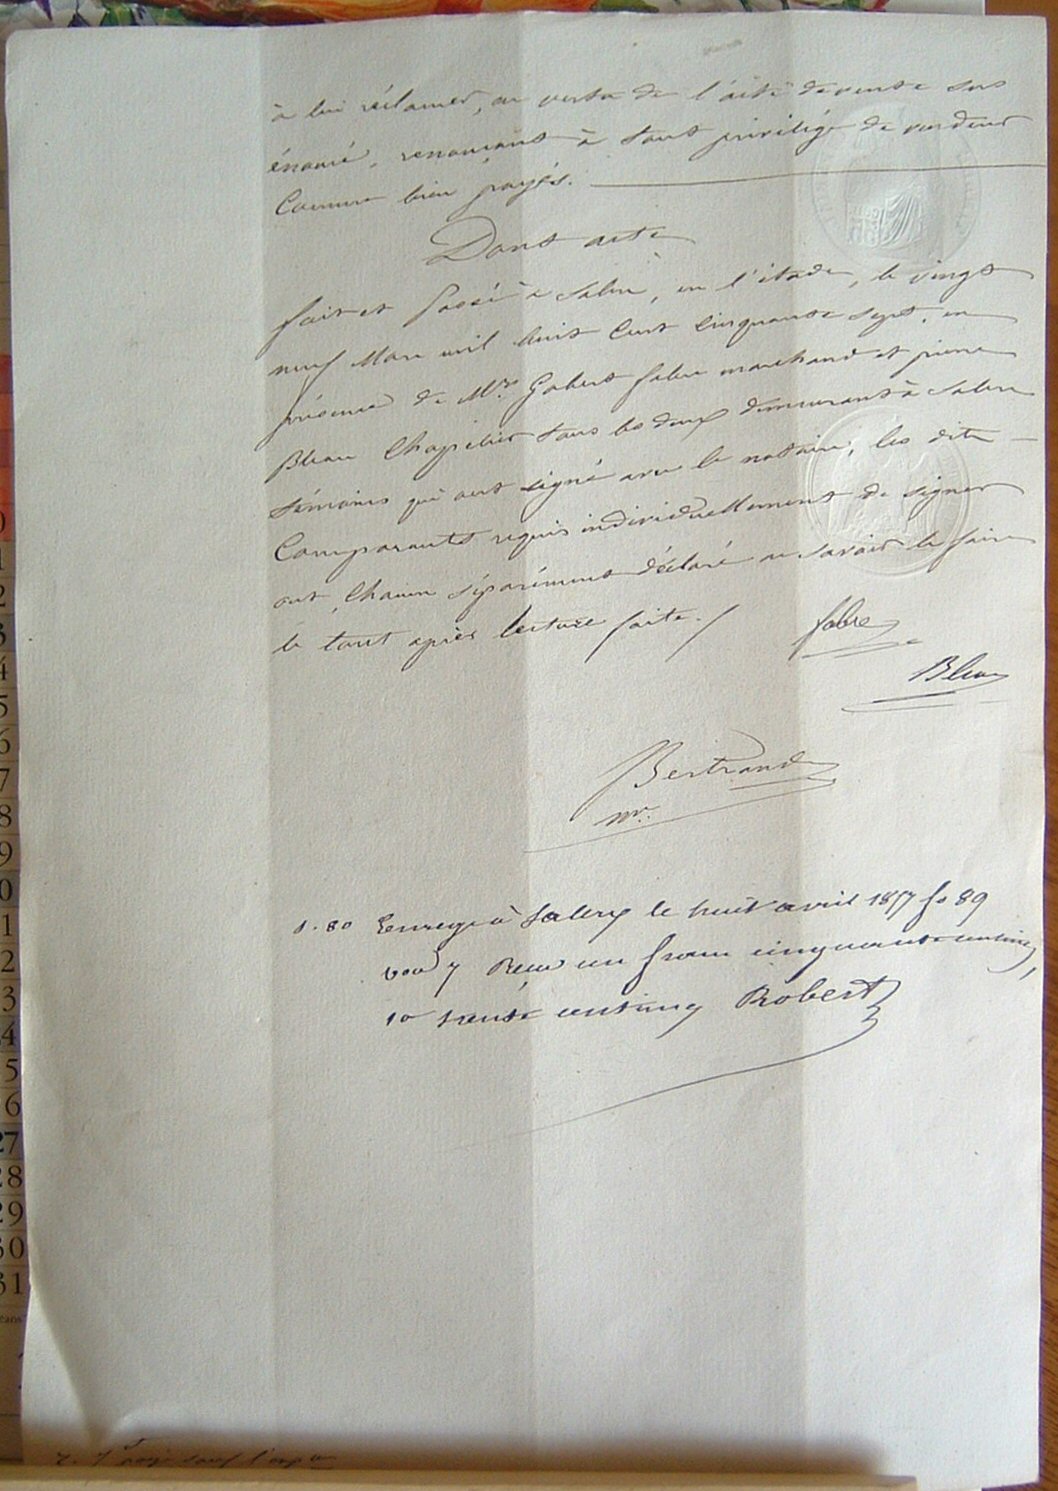 à lui réclamer, en vertu de l'acte de vente sus
énoncé, renonçant à tout privilège de vendeur
Comme bien payés.
Dont acte
fait et passé à Salers, en l'étude, le vingt
neuf Mars mil huit Cent Cinquante sept, en
présence de Mrs Fabre marchand et pierre
Bleau Chapelier tous les deux demeurant à Salers
témoins qui ont signé avec le notaire, les dits
Comparants requis individuellement de signer
ont, Chacun séparément déclaré ne savoir le faire
le tout après lecture faite./
fabre
Bleau
Bertrand
nre.
1.80 Enregé à Salers le huit avril 1857 fo 89
vo 7 Reçu un franc cinquante centimes,
10 trente centimes Robert